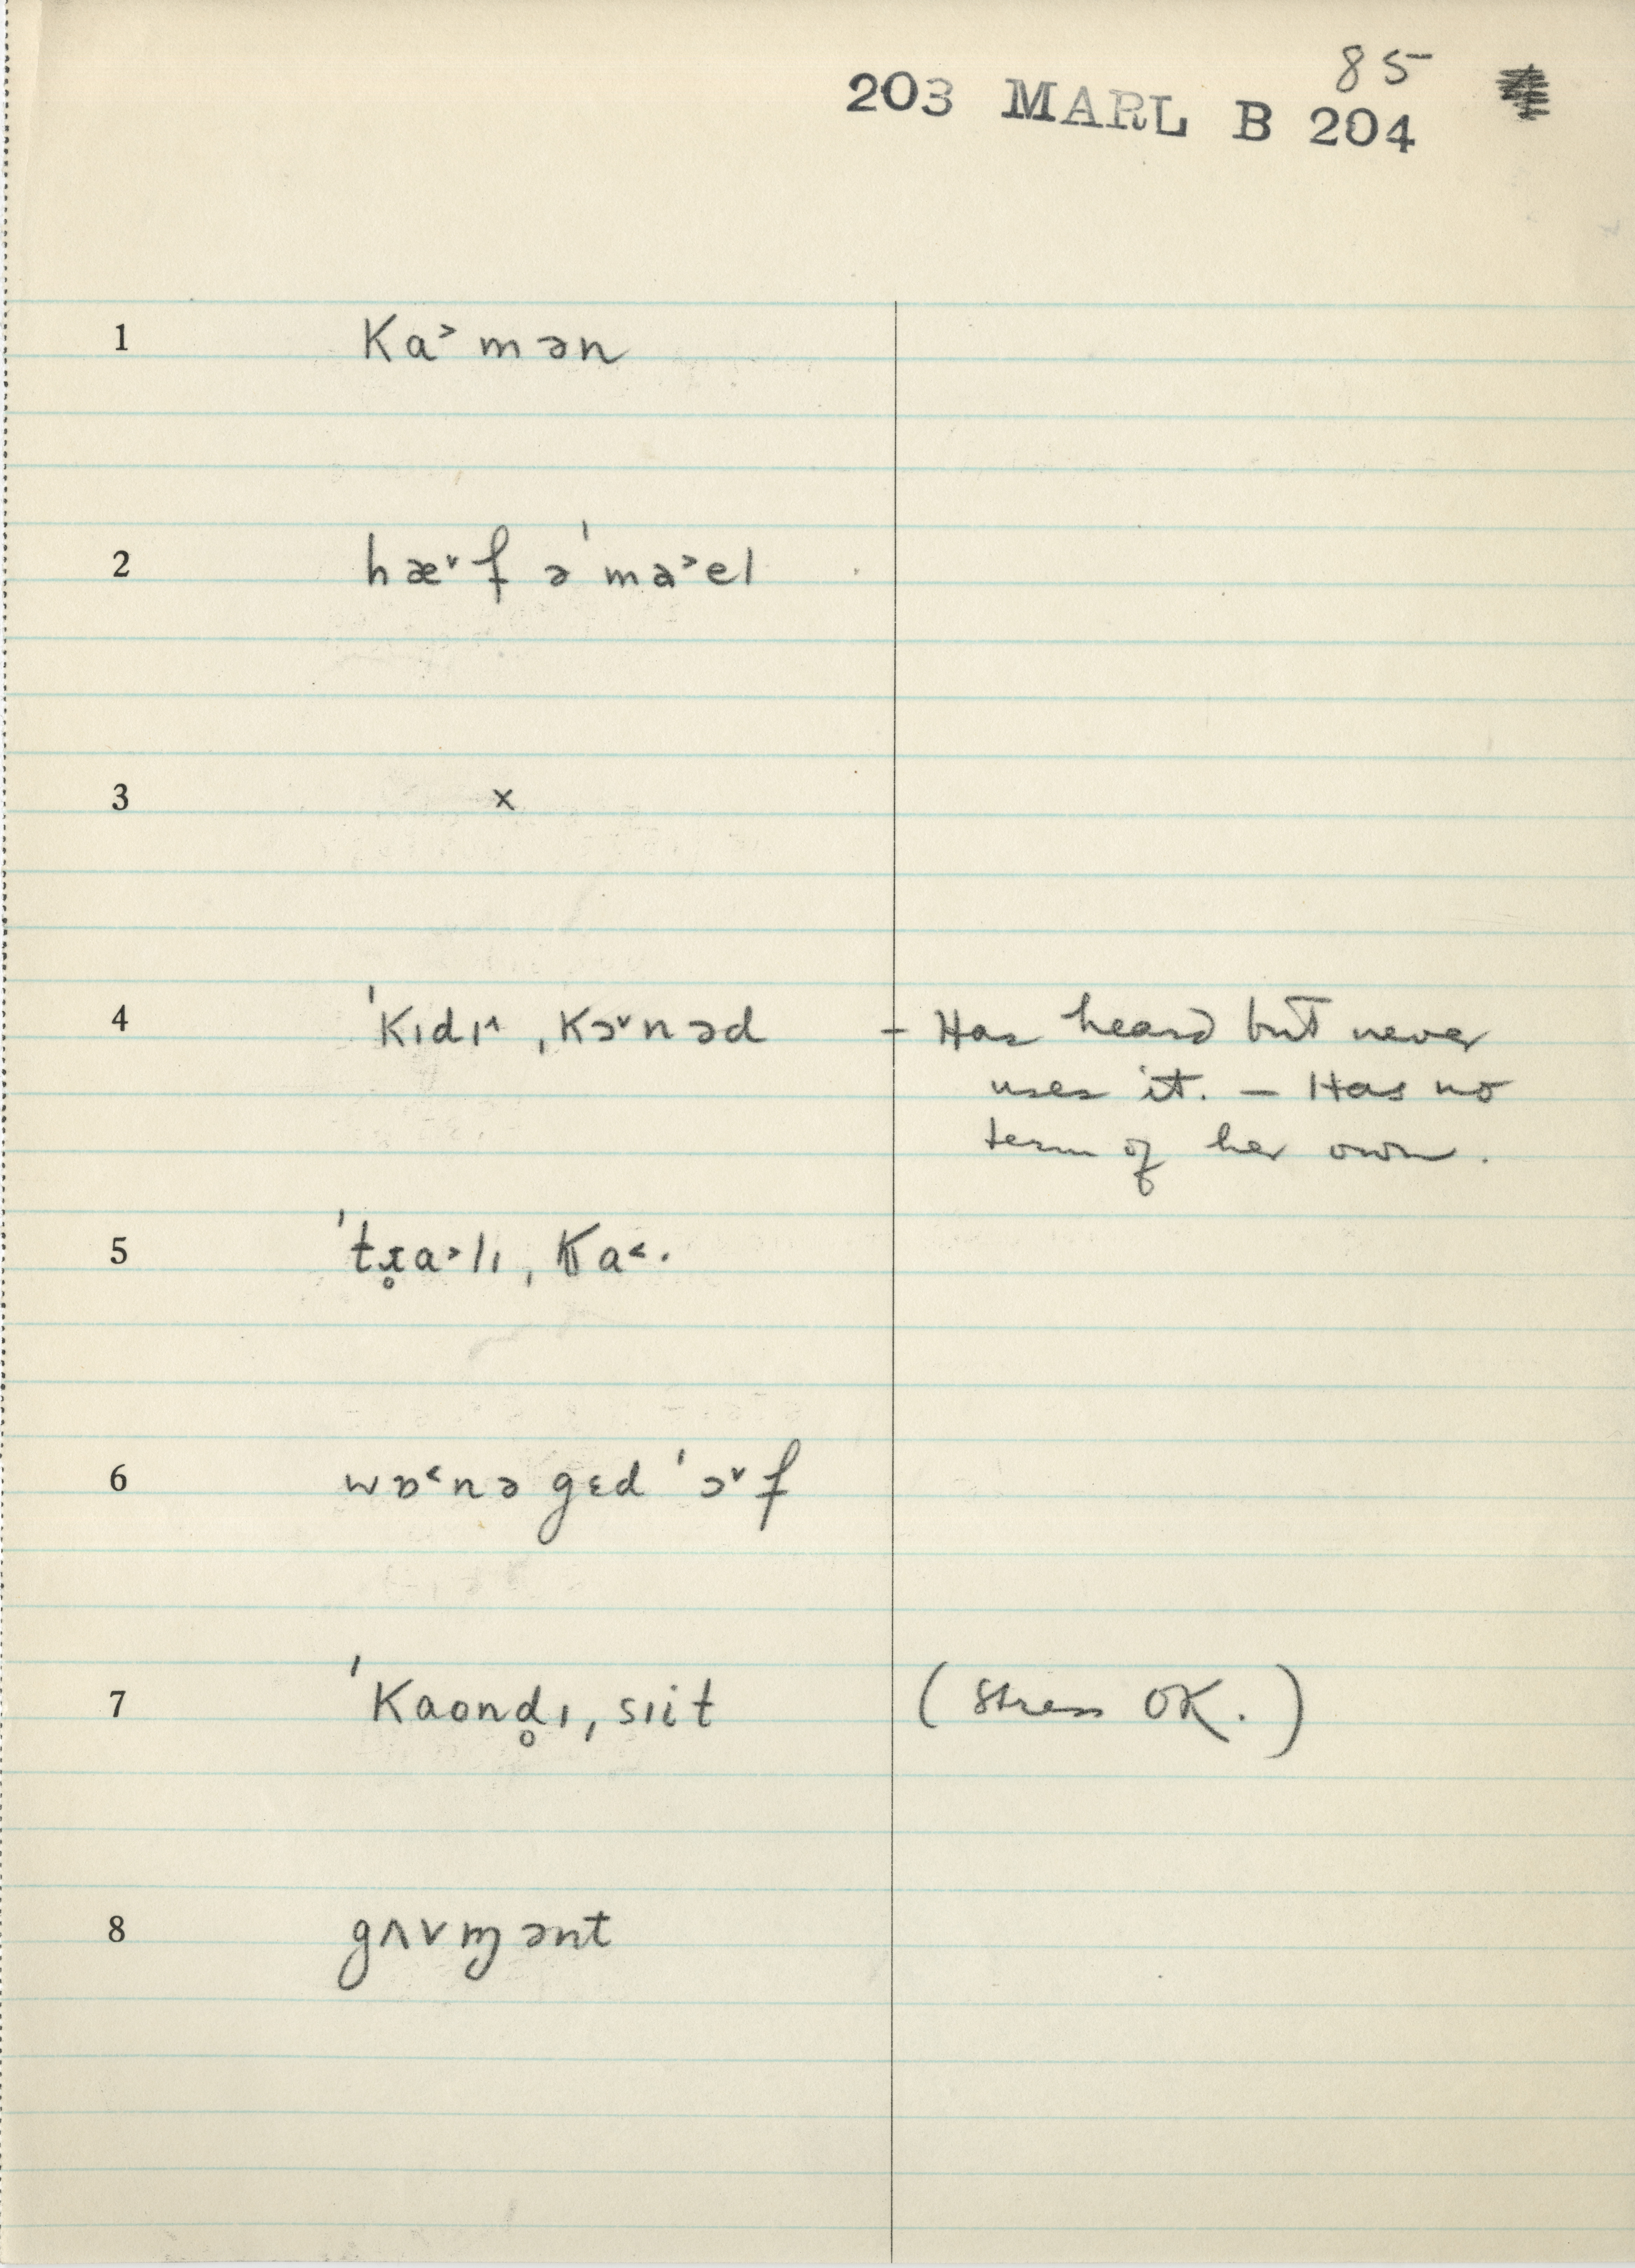 85
203 MARL B 204
1 Ka˃mən
2 hæ˅f ə ˈma˃el
3 x
4 ˈKɪdɪ˄ ˌKɔ˅nəd – Has heard but never
uses it. – Has no
term of her own.
5 ˈtɹ̥a˃lɪ ˌKa˂.
6 wɒ˂nə gɛd ˈɔ˅f
7 ˈKaond̥ɪ ˌsɪit (Stress OK.)
8 gʌvɱənt